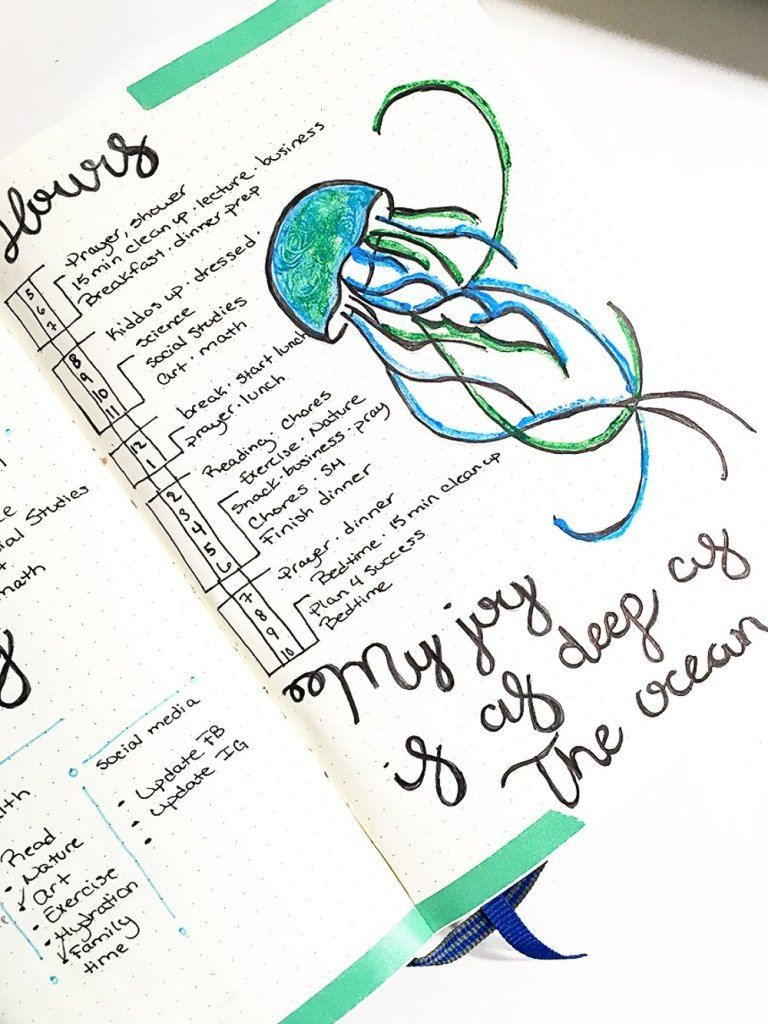 Hours
Prayer, shower
15 min clean up · lecture · business
Breakfast · dinner prep
5
6
7
Kiddos up · dressed ·
Science
Social Studies
Art · math
8
9
10
11
break · start lunch
prayer · lunch
12
1
Reading · Chores
Exercise · Nature
Snack · business · pray
Chores · SM
Finish dinner
2
3
4
5
6
Prayer · dinner
Bedtime · 15 min clean up
Plan 4 success
Bedtime
7
8
9
10
My joy
is as deep as
The ocean
Studies
math
Social media
• Update FB
• Update IG
•
Read
• Nature
✓ Art
• Exercise
• Hydration
✓ Family
time